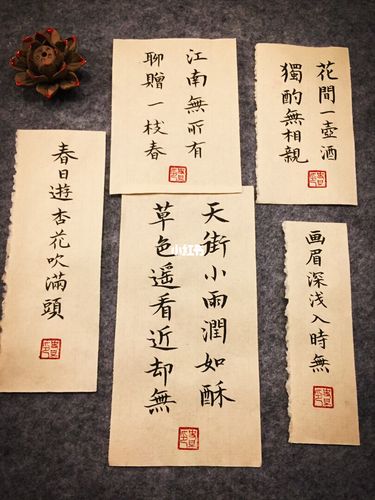 江南無所有
聊贈一枝春
花間一壺酒
獨酌無相親
春日遊杏花吹滿頭
天街小雨潤如酥
草色遥看近却無
画眉深浅入時無
小红书